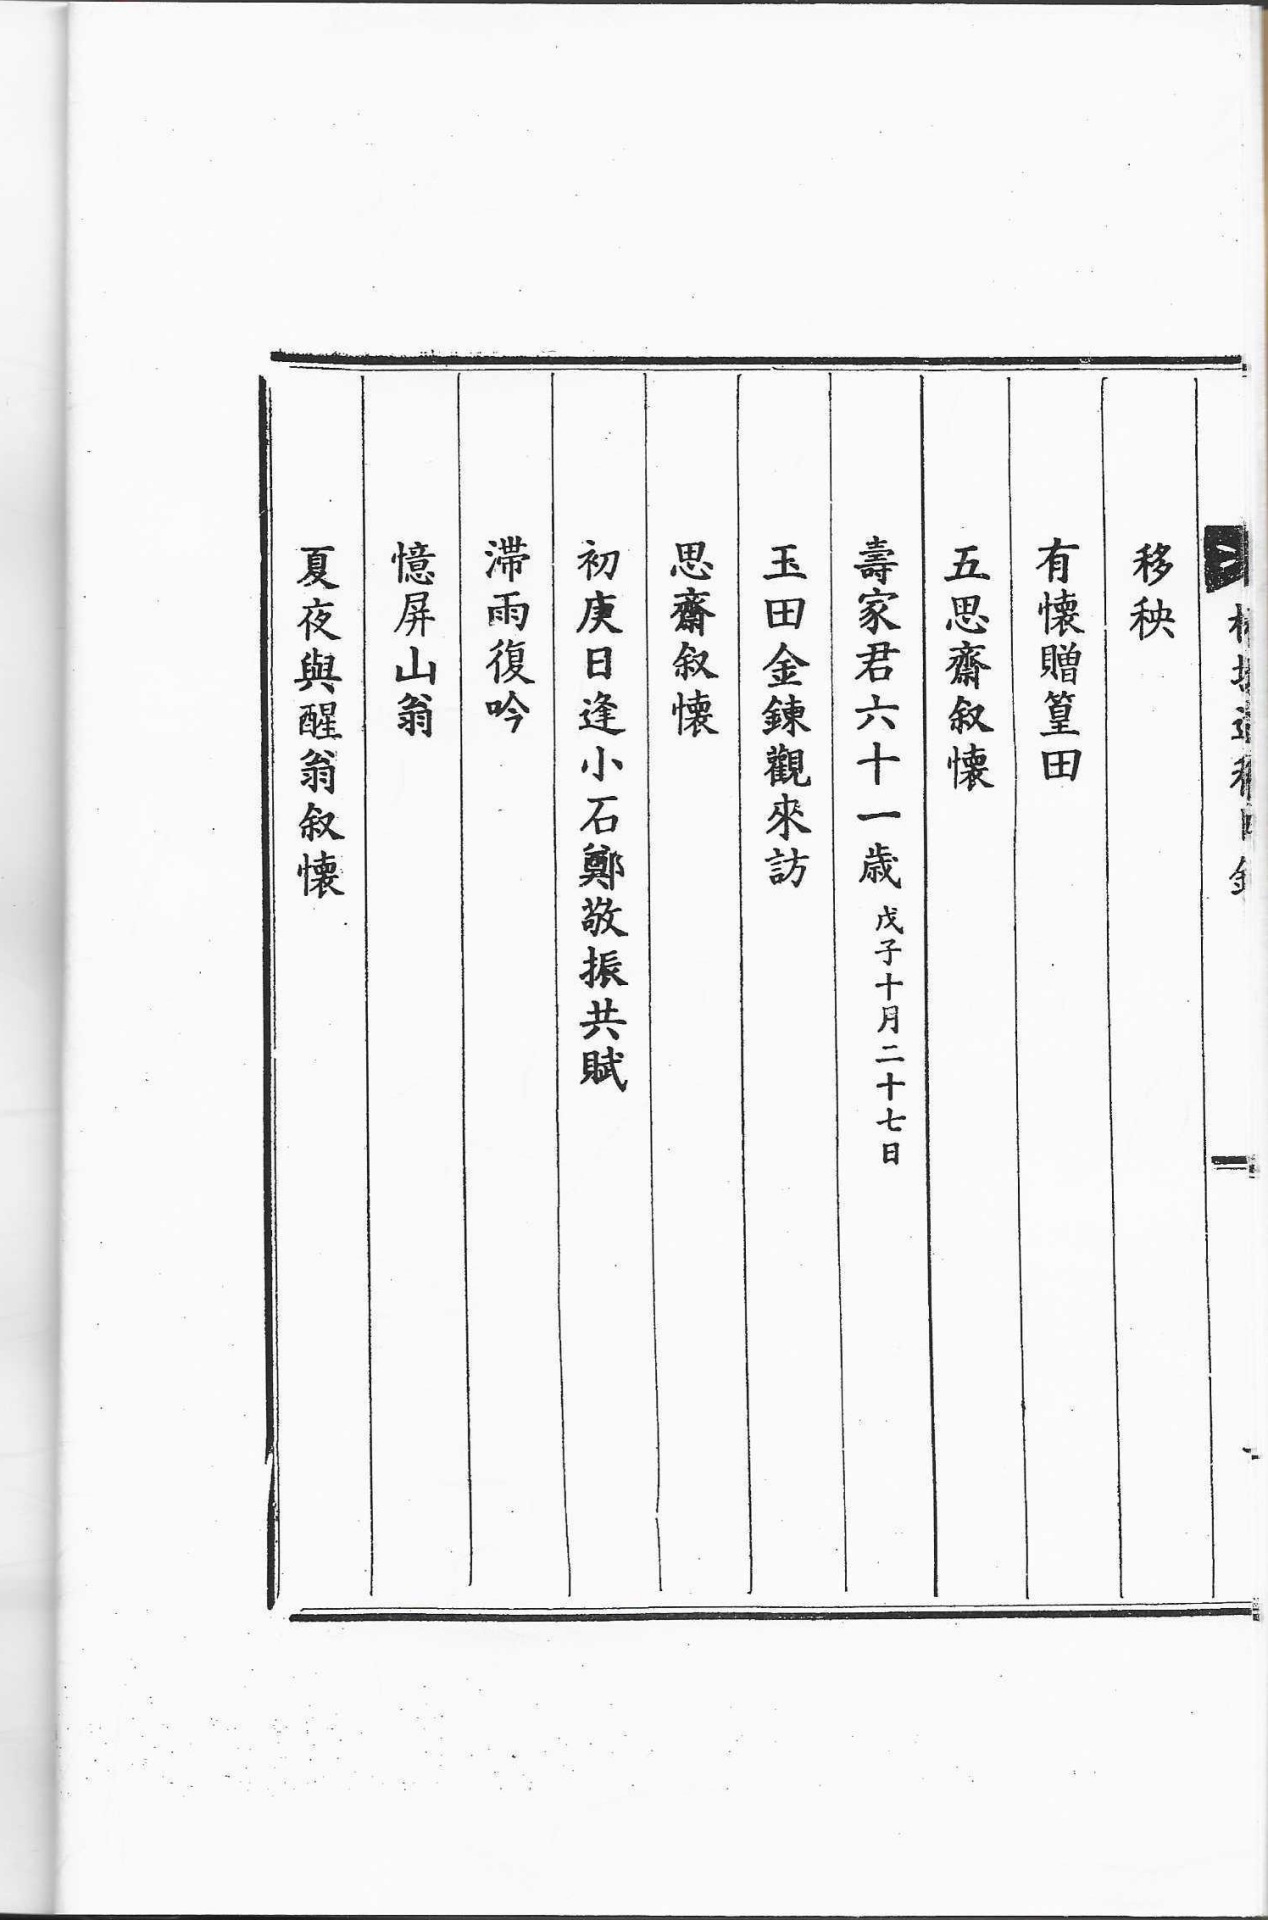 移秧
有懷贈篁田
五思齋叙懷
壽家君六十一歲 戊子十月二十七日
玉田金鍊觀來訪
思齋叙懷
初庚日逢小石鄭敬振共賦
滯雨復吟
憶屏山翁
夏夜與醒翁叙懷